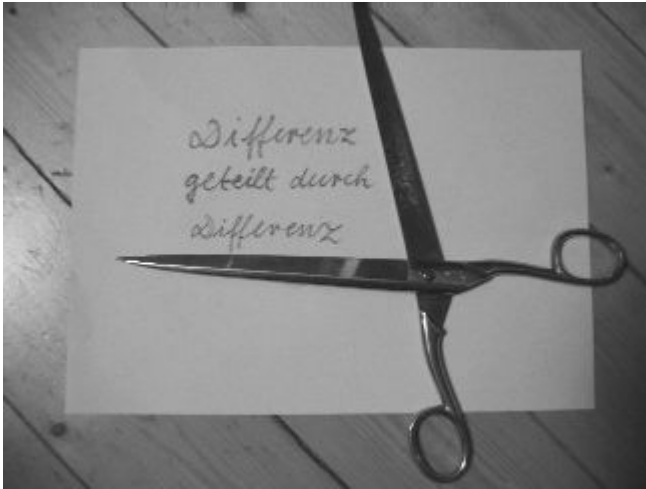 Differenz
geteilt durch
Differenz